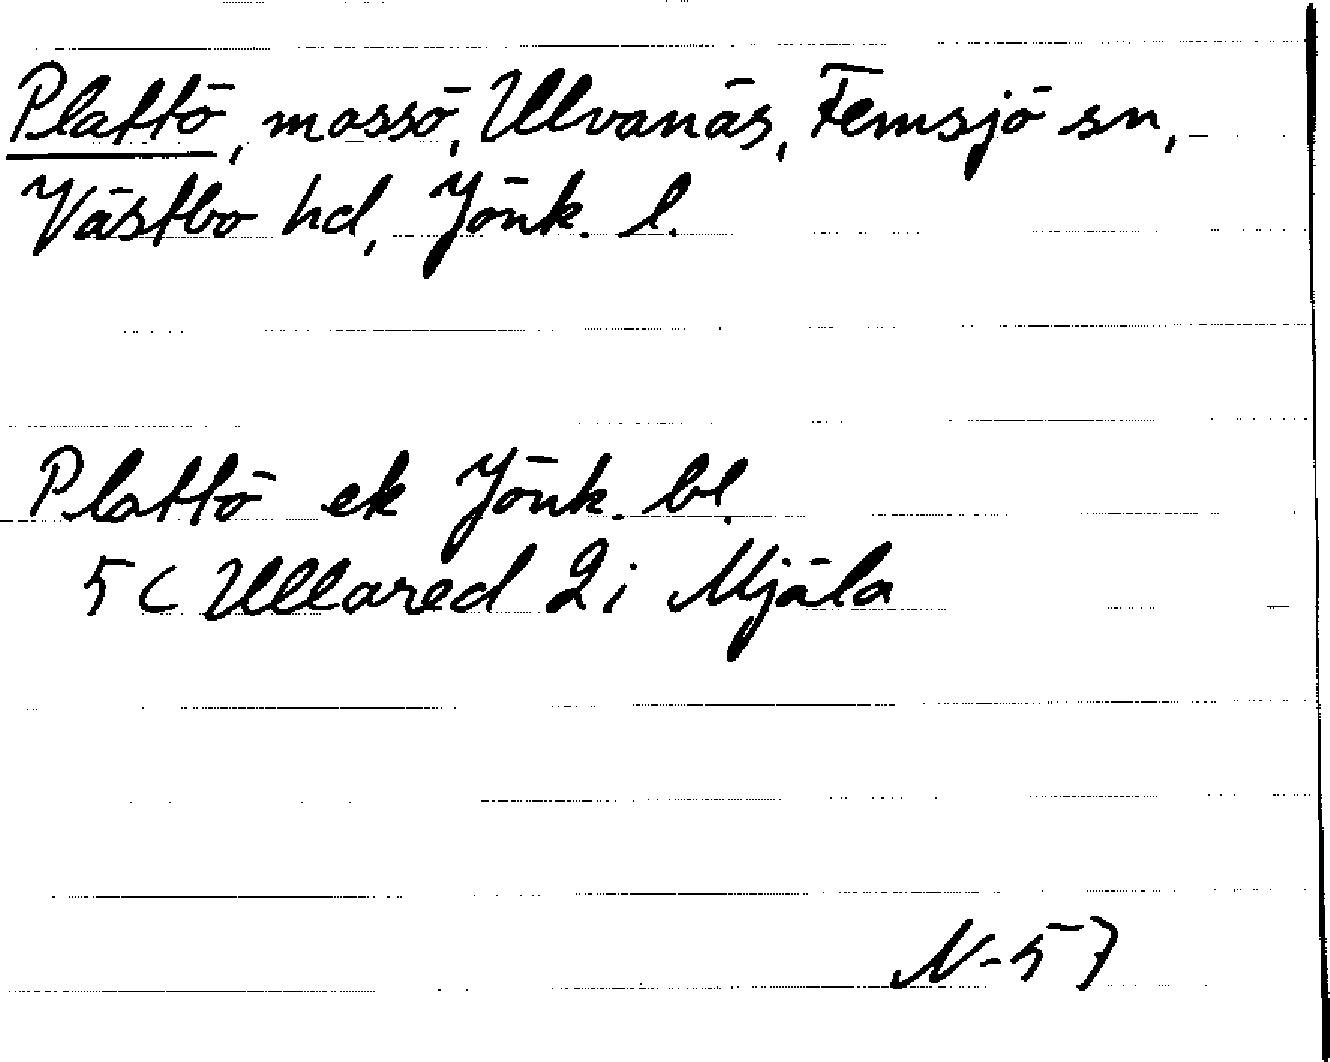 Plattö, mossö, Ulvanäs, Femsjö sn,
Västbo hd, Jönk. l.
Plattö ek Jönk. bl.
5C Ullared 2i Mjäla
N-57